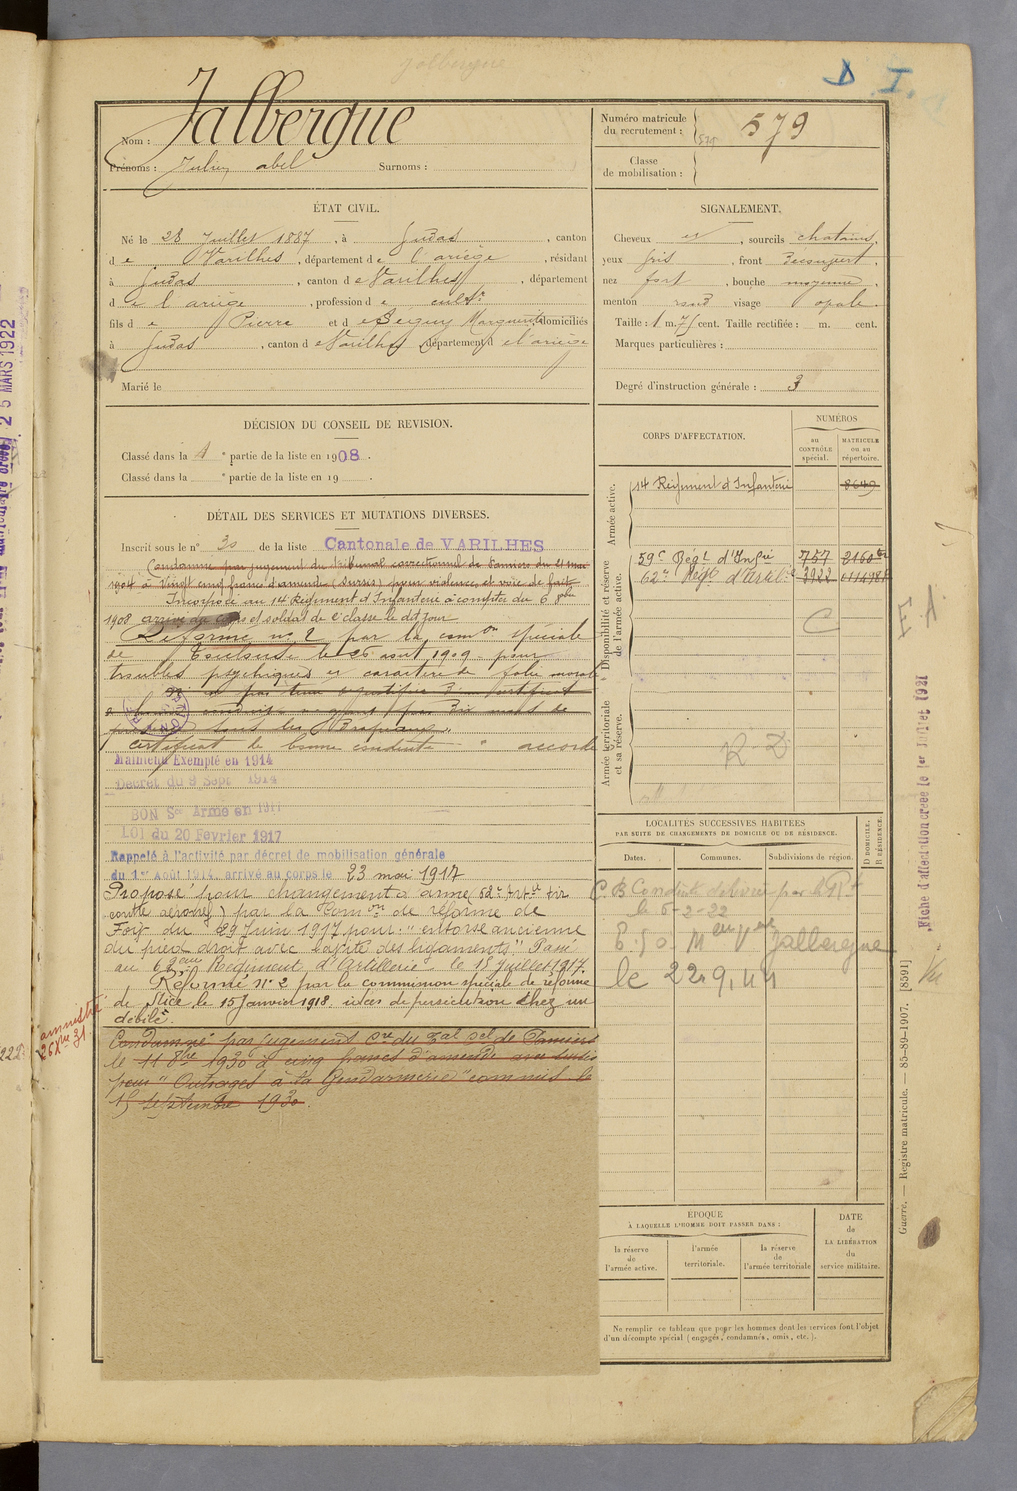 Jalbergue
D. I.
Nom : Jalbergue
Prénoms : Julien abel Surnoms :
Numéro matricule
du recrutement : 579
Classe
de mobilisation :
ÉTAT CIVIL.
Né le 28 Juillet 1887, à Gudas, canton
de Varilhes, département de l'ariège, résidant
à Gudas, canton de Varilhes, département
de l'ariège, profession de cultr
fils de Pierre et de Seguy Marguerite domiciliés
à Gudas, canton de Varilhes, département de l'ariège
Marié le
SIGNALEMENT.
Cheveux et, sourcils chatains,
yeux gris, front découvert,
nez fort, bouche moyenne,
menton rond visage ovale.
Taille : 1 m. 71 cent. Taille rectifiée : m. cent.
Marques particulières :
Degré d'instruction générale : 3
DÉCISION DU CONSEIL DE REVISION.
Classé dans la 1e partie de la liste en 1908.
Classé dans la e partie de la liste en 19 .
DÉTAIL DES SERVICES ET MUTATIONS DIVERSES.
Inscrit sous le n° 30 de la liste Cantonale de VARILHES
Condamné par jugement du tribunal correctionnel de Pamiers du 21 mai
1904 à Vingt cinq francs d'amende (Sursis) pour violences et voies de fait
Incorporé au 14 Régiment d'Infanterie à compter du 6 8bre
1908 arrivé au corps et soldat de 2e classe le dit jour
Réformé no 2 par la comon spéciale
de Toulouse le 26 aout 1909 pour
troubles psychiques et caractère de folie morale
certificat de bonne conduite accordé
Maintenu Exempté en 1914
Décret du 9 Sept 1914
BON Sce Armé en 1917
LOI du 20 Février 1917
Rappelé à l'activité par décret de mobilisation générale
du 1er Août 1914, arrivé au corps le 23 mai 1917
Proposé pour changement d'arme (62e Artie tir
contre aérone) par la Comon de réforme de
Foix du 29 Juin 1917 pour : "entorse ancienne
du pied droit avec laxité des ligaments". Passé
au 62ème Régiment d'Artillerie le 15 Juillet 1917.
Réformé N° 2 par la commission spéciale de réforme
de Nice le 15 Janvier 1918. idées de persécution chez un
débile.
Condamné par jugement Cre du Tal Sel de Pamiers
le 11 8bre 1930 à cinq francs d'amende avec sursis
pour "Outrages à la Gendarmerie" commis le
15 septembre 1930.
amnistié
26 Xbre 31.
CORPS D'AFFECTATION.
NUMÉROS
au
CONTRÔLE
spécial.
MATRICULE
ou au
répertoire.
Armée active.
14 Régiment d'Infanterie 8649
Disponibilité et réserve
de l'armée active.
59e Régt d'Infie 757 2160
62e Régt d'Artilie 3922
C
Armée territoriale
et sa réserve.
R-D
E. A
LOCALITÉS SUCCESSIVES HABITÉES
PAR SUITE DE CHANGEMENTS DE DOMICILE OU DE RÉSIDENCE.
Dates. Communes. Subdivisions de région.
D DOMICILE.
R RÉSIDENCE.
C. B Conduite délivré par le Rt
le 6-2-22
Jalbergue
le 22.9.44
ÉPOQUE
À LAQUELLE L'HOMME DOIT PASSER DANS :
la réserve
de
l'armée active.
l'armée
territoriale.
la réserve
de
l'armée territoriale
DATE
de
LA LIBÉRATION
du
service militaire.
Ne remplir ce tableau que pour les hommes dont les services font l'objet
d'un décompte spécial (engagés, condamnés, omis, etc.).
Fiche d'affectation créée le 1er Juillet 1921
Guerre. — Registre matricule. — 85-89-1907. [8591]
25 MARS 1922